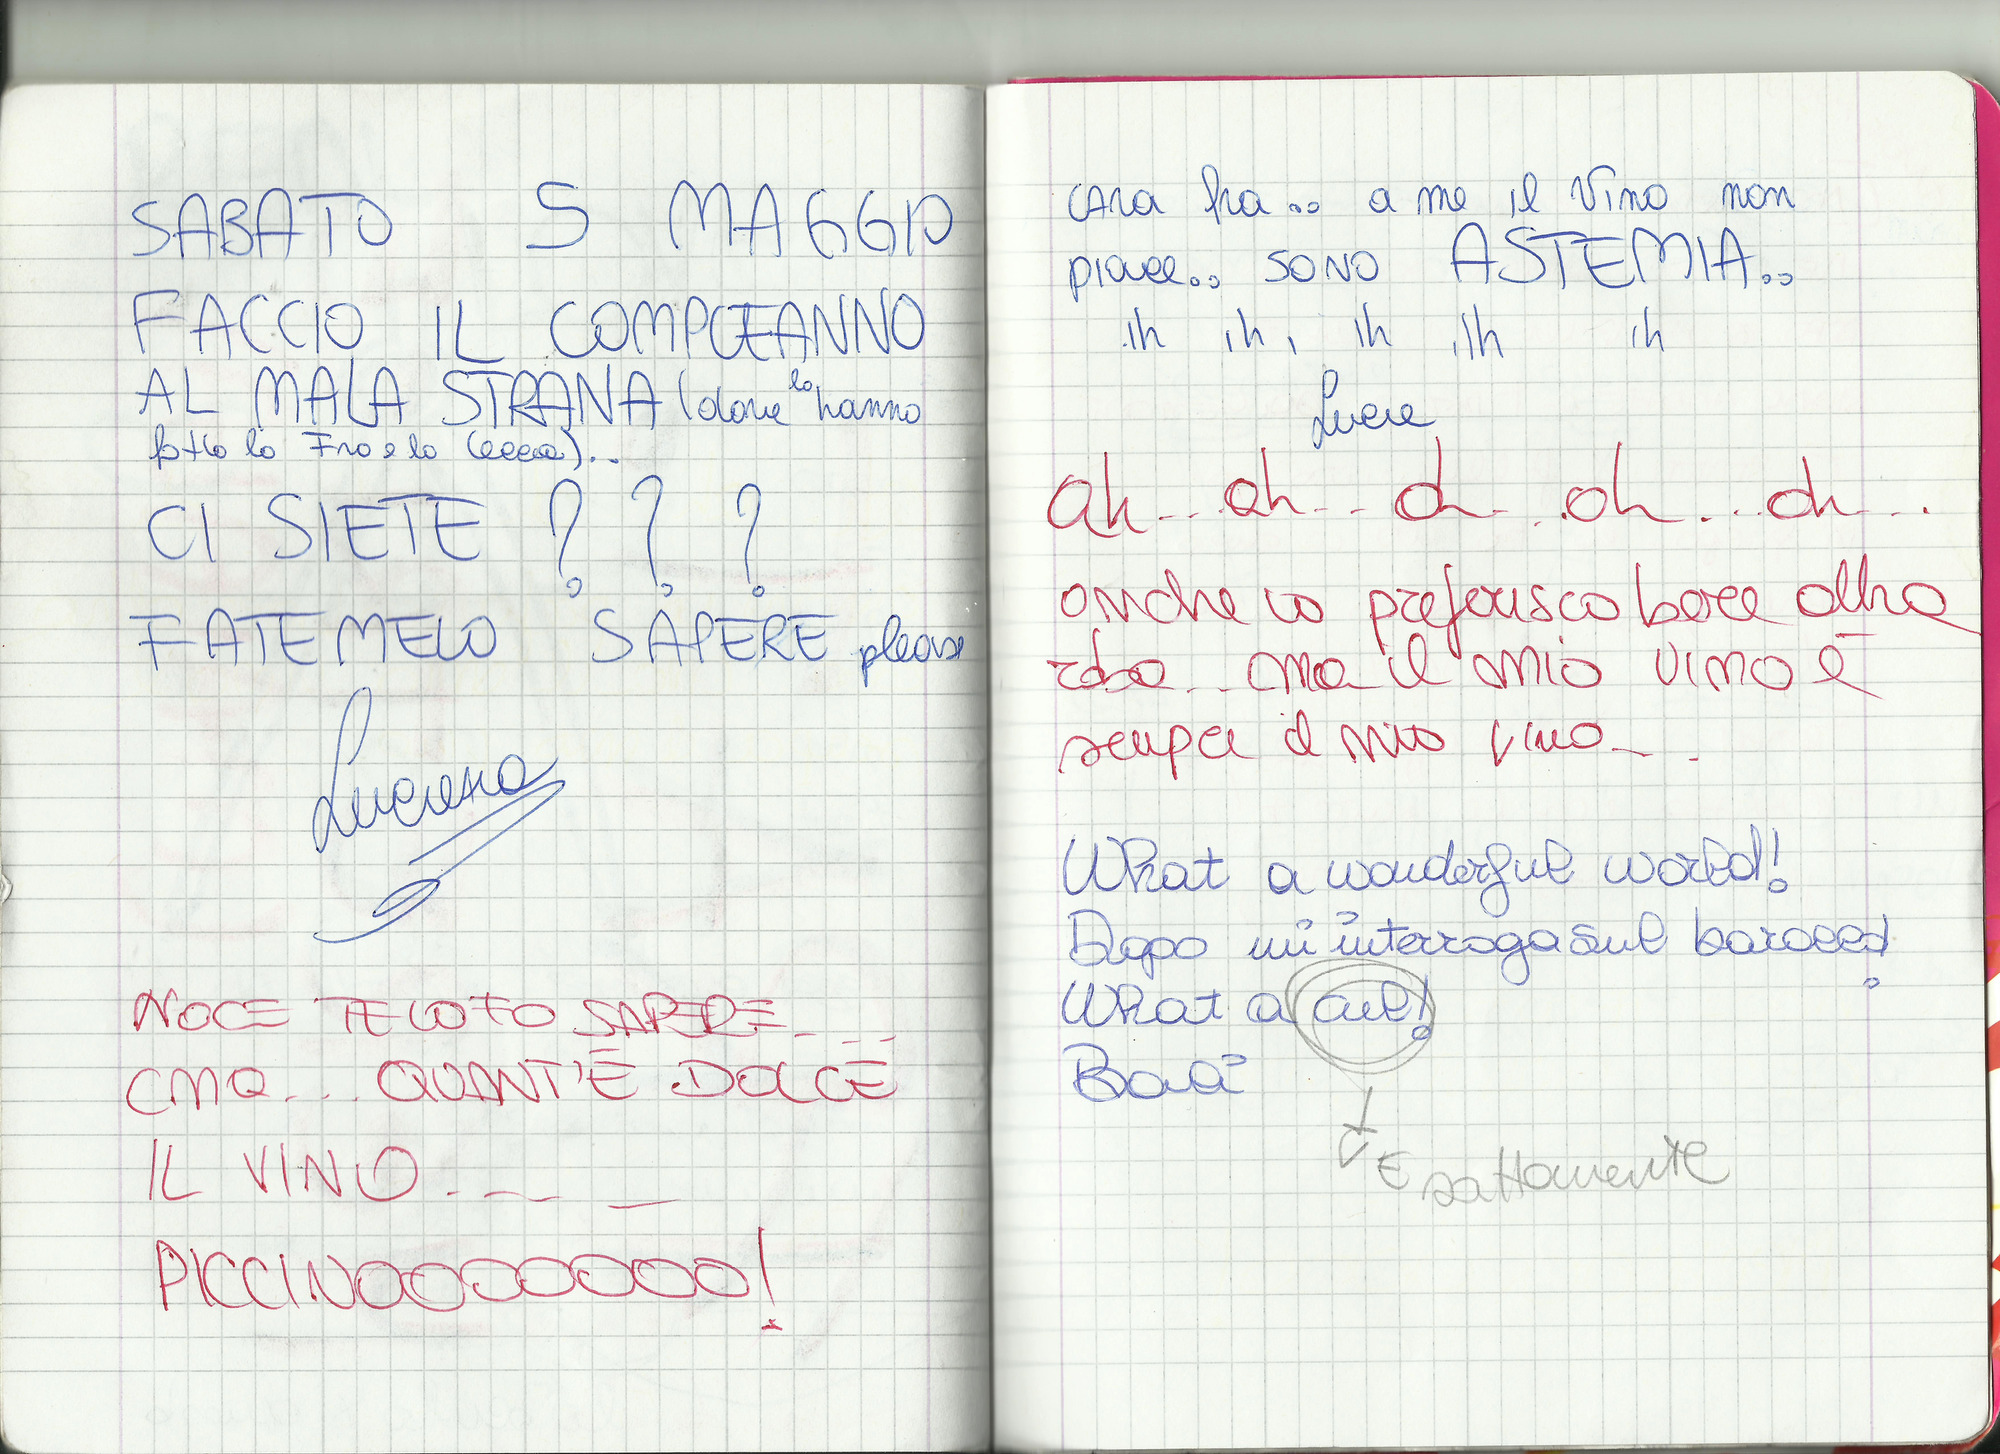 SABATO 5 MAGGIO
FACCIO IL COMPLEANNO
AL MALA STRANA (dove lo hanno
fatto la Fro e la
CI SIETE ? ? ?
FATEMELO SAPERE please
Luciana
NOCE TE LO FO SAPERE...
CMQ... QUANT'È DOLCE
IL VINO...
PICCINOOOOOOOO!
CARA fra.. a me il vino non
piace.. SONO ASTEMIA..
ih ih, ih ih ih
Lucia
ah... ah... ah... ah... ah...
anche io preferisco bere altra
roba... ma il mio vino è
sempre il mio vino...
What a wonderful world!
Dopo mi interroga sul barocco!
What a cul!
Bauà
Esattamente